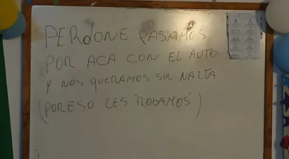 PERDONE PASAMOS
POR ACA CON EL AUTO
Y NOS QUERAMOS SIN NAZTA
(POR ESO LES "ROBAMOS")